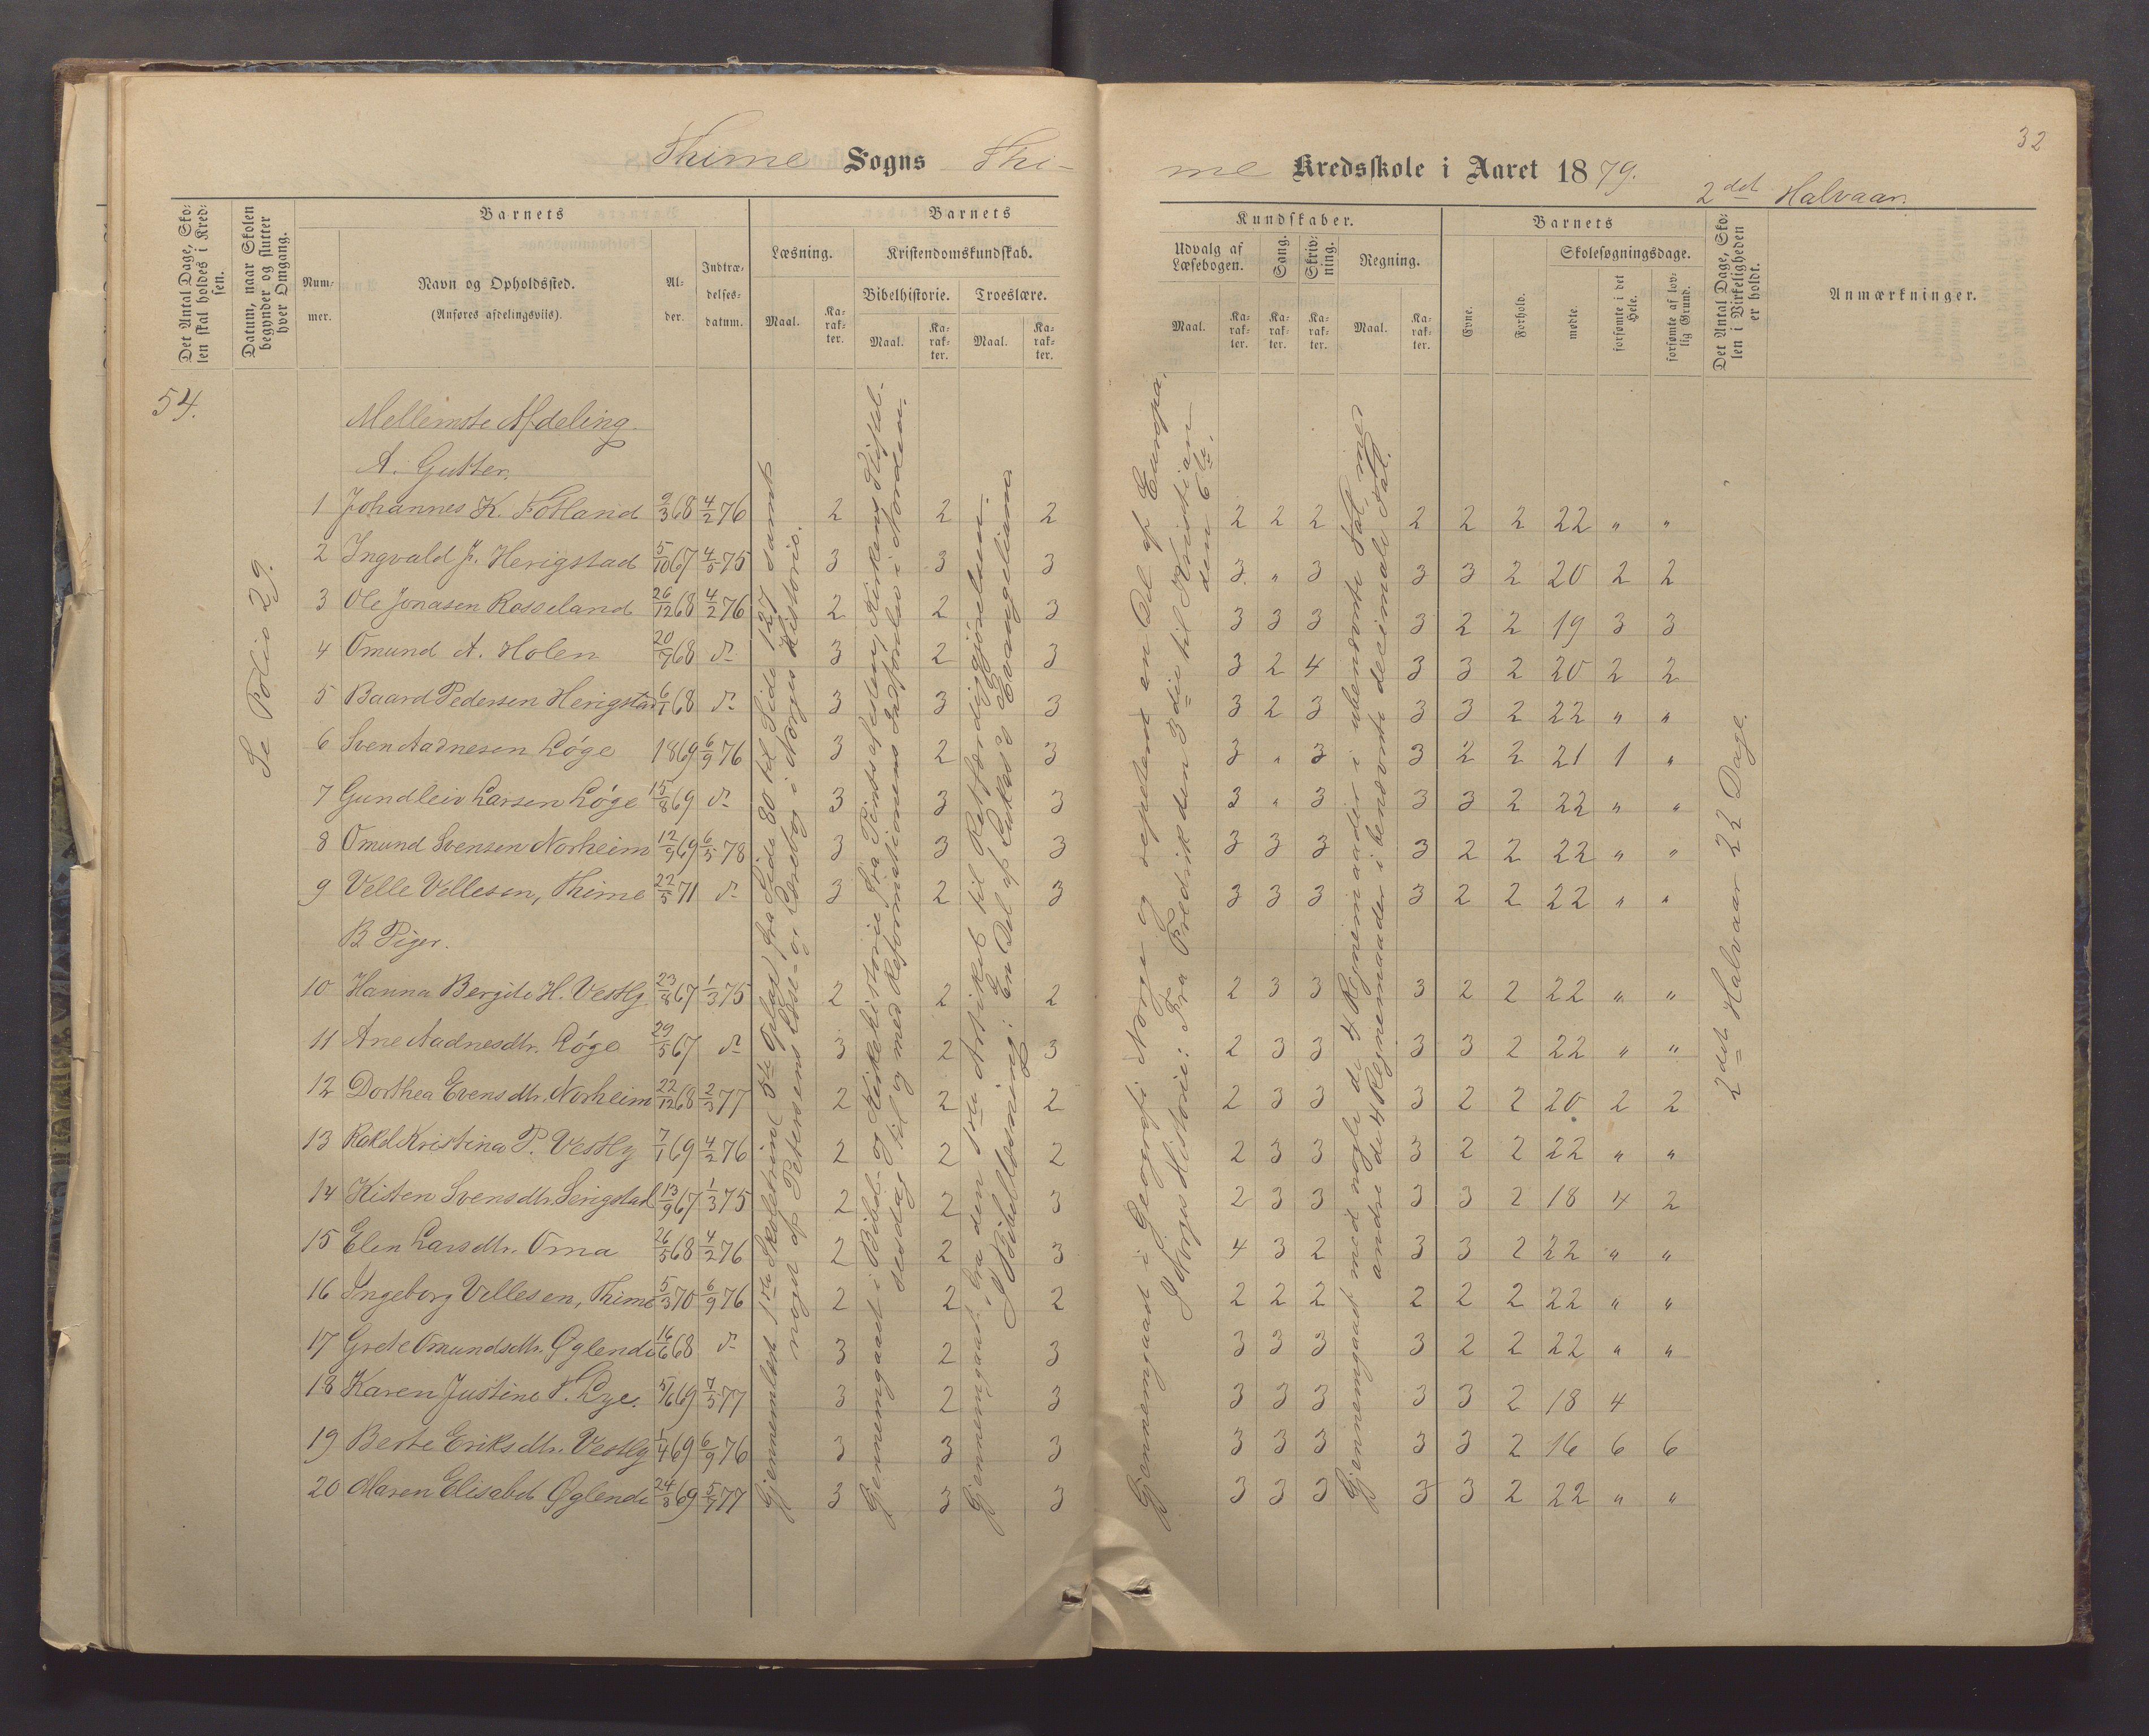 32
Thime Sogns Thi-
me Kredsskole i Aaret 1879.
2det Halvaar.
Det Antal Dage, Sko-
len skal holdes i Kred-
sen.
Datum, naar Skolen
begynder og slutter
hver Omgang.
Barnets
Num-
mer.
Navn og Opholdssted.
(Anføres afdelingsviis).
Al-
der.
Indtræ-
delses-
datum.
Barnets
Læsning.
Maal.
Ka-
rak-
ter.
Kristendomskundskab.
Bibelhistorie.
Maal.
Ka-
rak-
ter.
Troeslære.
Maal.
Ka-
rak-
ter.
Kundskaber.
Udvalg af
Læsebogen.
Maal.
Ka-
rak-
ter.
Sang.
Ka-
rak-
ter.
Skriv-
ning.
Ka-
rak-
ter.
Regning.
Maal.
Ka-
rak-
ter.
Barnets
Evne.
Forhold.
Skolesøgningsdage.
mødte.
forsømte i det
Hele.
forsømte af lov-
lig Grund.
Det Antal Dage, Sko-
len i Virkeligheden
er holdt.
Anmærkninger.
54.
Se Folio 29.
Mellemste Afdeling.
A. Gutter.
1 Johannes K. Fotland 9/3 68 4/2 76 2 2 2 2 2 2 2 2 2 22 " "
2 Ingvald J. Herigstad 5/10 67 4/5 75 3 3 3 3 " 3 3 3 2 20 2 2
3 Ole Jonasen Rosseland 26/12 68 4/2 76 2 2 3 3 3 3 3 2 2 19 3 3
4 Omund A. Holen 20/9 68 d° 3 2 3 3 2 4 3 3 2 20 2 2
5 Baard Pedersen Herigstad 6/1 68 d° 3 3 3 3 2 3 3 3 2 22 " "
6 Sven Aadnesen Løge 1869 6/9 76 3 2 3 3 " 3 3 2 2 21 1 "
7 Gundleiv Larsen Løge 15/8 69 d° 3 3 3 3 " 3 3 3 2 22 " "
8 Omund Svensen Norheim 12/9 69 6/5 78 3 3 3 3 3 3 3 2 2 22 " "
9 Velle Vellesen, Thime 22/5 71 d° 3 2 3 3 3 3 3 2 2 22 " "
B Piger.
10 Hanna Bergite H. Vestly 23/8 67 1/3 75 2 2 2 2 3 3 3 2 2 22 " "
11 Ane Aadnesdtr. Løge 29/5 67 d° 3 2 3 2 3 3 3 3 2 22 " "
12 Dorthea Evensdtr. Norheim 22/12 68 2/3 77 2 2 2 2 3 3 3 2 2 20 2 2
13 Rakel Kristina P. Vestly 7/1 69 4/2 76 2 2 2 2 3 3 3 2 2 22 " "
14 Kisten Svensdtr. Serigstad 13/9 67 1/3 75 2 2 3 2 3 3 3 3 2 18 4 2
15 Elen Larsdtr. Oma 26/5 68 4/2 76 2 2 3 4 3 2 3 3 2 22 " "
16 Ingeborg Vellesen, Thime 5/3 70 6/9 76 2 2 2 2 2 2 2 2 2 22 " "
17 Grete Omundsdtr. Øglende 16/6 68 d° 3 2 3 3 3 3 3 2 2 22 " "
18 Karen Justine T. Lye. 5/6 69 7/5 77 3 2 3 3 3 3 3 3 2 18 4
19 Berte Eriksdtr. Vestly 1/4 69 6/9 76 3 3 3 3 3 3 3 3 2 16 6 6
20 Maren Elisabet Øglende 24/3 69 5/7 77 3 3 3 3 3 3 3 3 2 22 " "
Gjennemlæst 1ste Skoletrin (5te Oplag) fra Side 80 til Side 127 samt
noget af Petersens Læse- og Lærebog i Norges Historie.
Gjennemgaaet i Bibel- og Kirkehistorie fra Pintsefesten, Kirkens Stiftel-
sesdag til og med Reformationens Indførelse i Norden.
Gjennemgaaet fra den 1ste Artikel til Retfærdiggjørelsen.
I Bibellæsning: En Del af Lukas's Evangelium.
Gjennemgaaet i Geografi Norge og repeteret en Del af Europa.
I Norges Historie: Fra Fredrik den 3die til Kristian
den 6te.
Gjennemgaaet med nogle de 4 Regnemaader i ubenævnte Tal, med
andre de 4 Regnemaader i benævnte decimale Tal.
2det Halvaar 22 Dage.